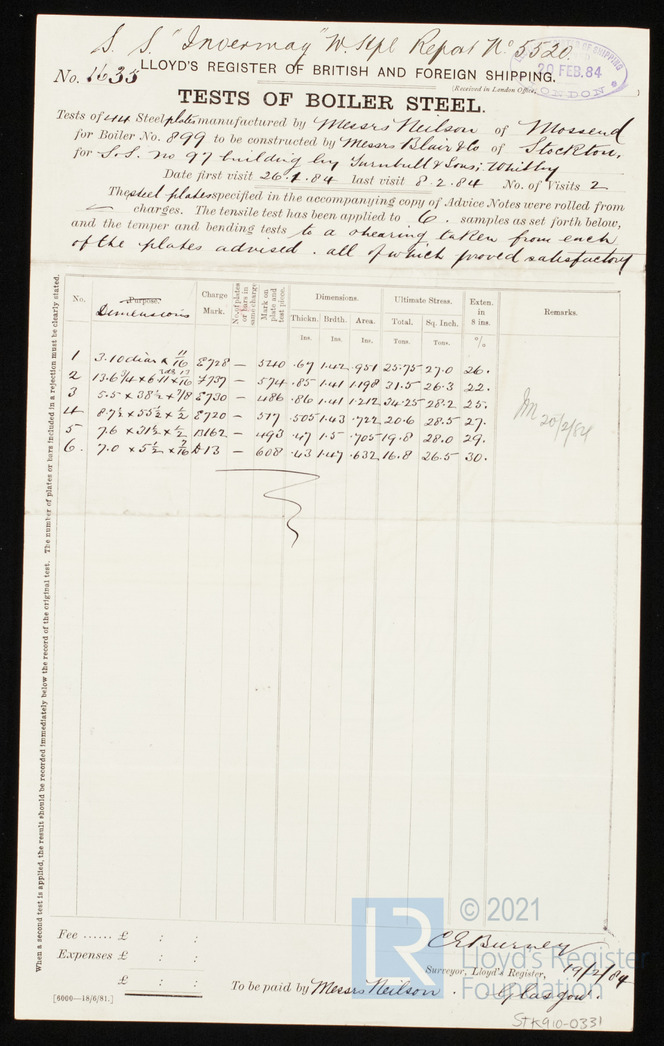 S. S. "Invermay" W. Hpl Report No. 5520.
20 FEB. 84
LONDON
No. 1633 LLOYD'S REGISTER OF BRITISH AND FOREIGN SHIPPING.
(Received in London Office,
TESTS OF BOILER STEEL.
Tests of 44 Steel plates manufactured by Messrs Neilson of Mossend
for Boiler No. 899 to be constructed by Messrs Blair & Co of Stockton,
for S.S. No 97 building by Turnbull & Sons; Whitby
Date first visit 26.1.84 last visit 8.2.84 No. of Visits 2
The steel plates specified in the accompanying copy of Advice Notes were rolled from
charges. The tensile test has been applied to 6. samples as set forth below,
and the temper and bending tests to a shearing taken from each
of the plates advised. all of which proved satisfactory
No. Purpose. Dimensions Charge Mark. No. of plates or bars in same charge Mark on plate and test piece. Dimensions. Ultimate Stress. Exten. in 8 ins. Remarks.
Thickn. Brdth. Area. Total. Sq. Inch.
Ins. Ins. Ins. Tons. Tons. %
1 3.10 diar x 11/16 £728 — 540 .67 1.42 .951 25.75 27.0 26.
2 £737 — 574 .85 1.41 1.198 31.5 26.3 22.
3 5.5 x 38½ x 7/8 £730 — 486 .86 1.41 1.212 34.25 28.2 25.
4 8.7½ x 55½ x ½ £720 — 517 .505 1.43 .722 20.6 28.5 27.
5 7.6 x 31½ x ½ B162 — 493 .47 1.5 .705 19.8 28.0 29.
6. 7.0 x 5½ x 7/16 A13 — 608 .43 1.47 .632 16.8 26.5 30.
20/2/84
When a second test is applied, the result should be recorded immediately below the record of the original test. The number of plates or bars included in a rejection must be clearly stated.
© 2021
LR Lloyd's Register Foundation
Fee ...... £ : :
Expenses £ : :
£ : :
C E Burney
Surveyor, Lloyd's Register, 19/2/84
To be paid by Messrs Neilson. Glasgow.
[6000—18/6/81.]
STK910-0331